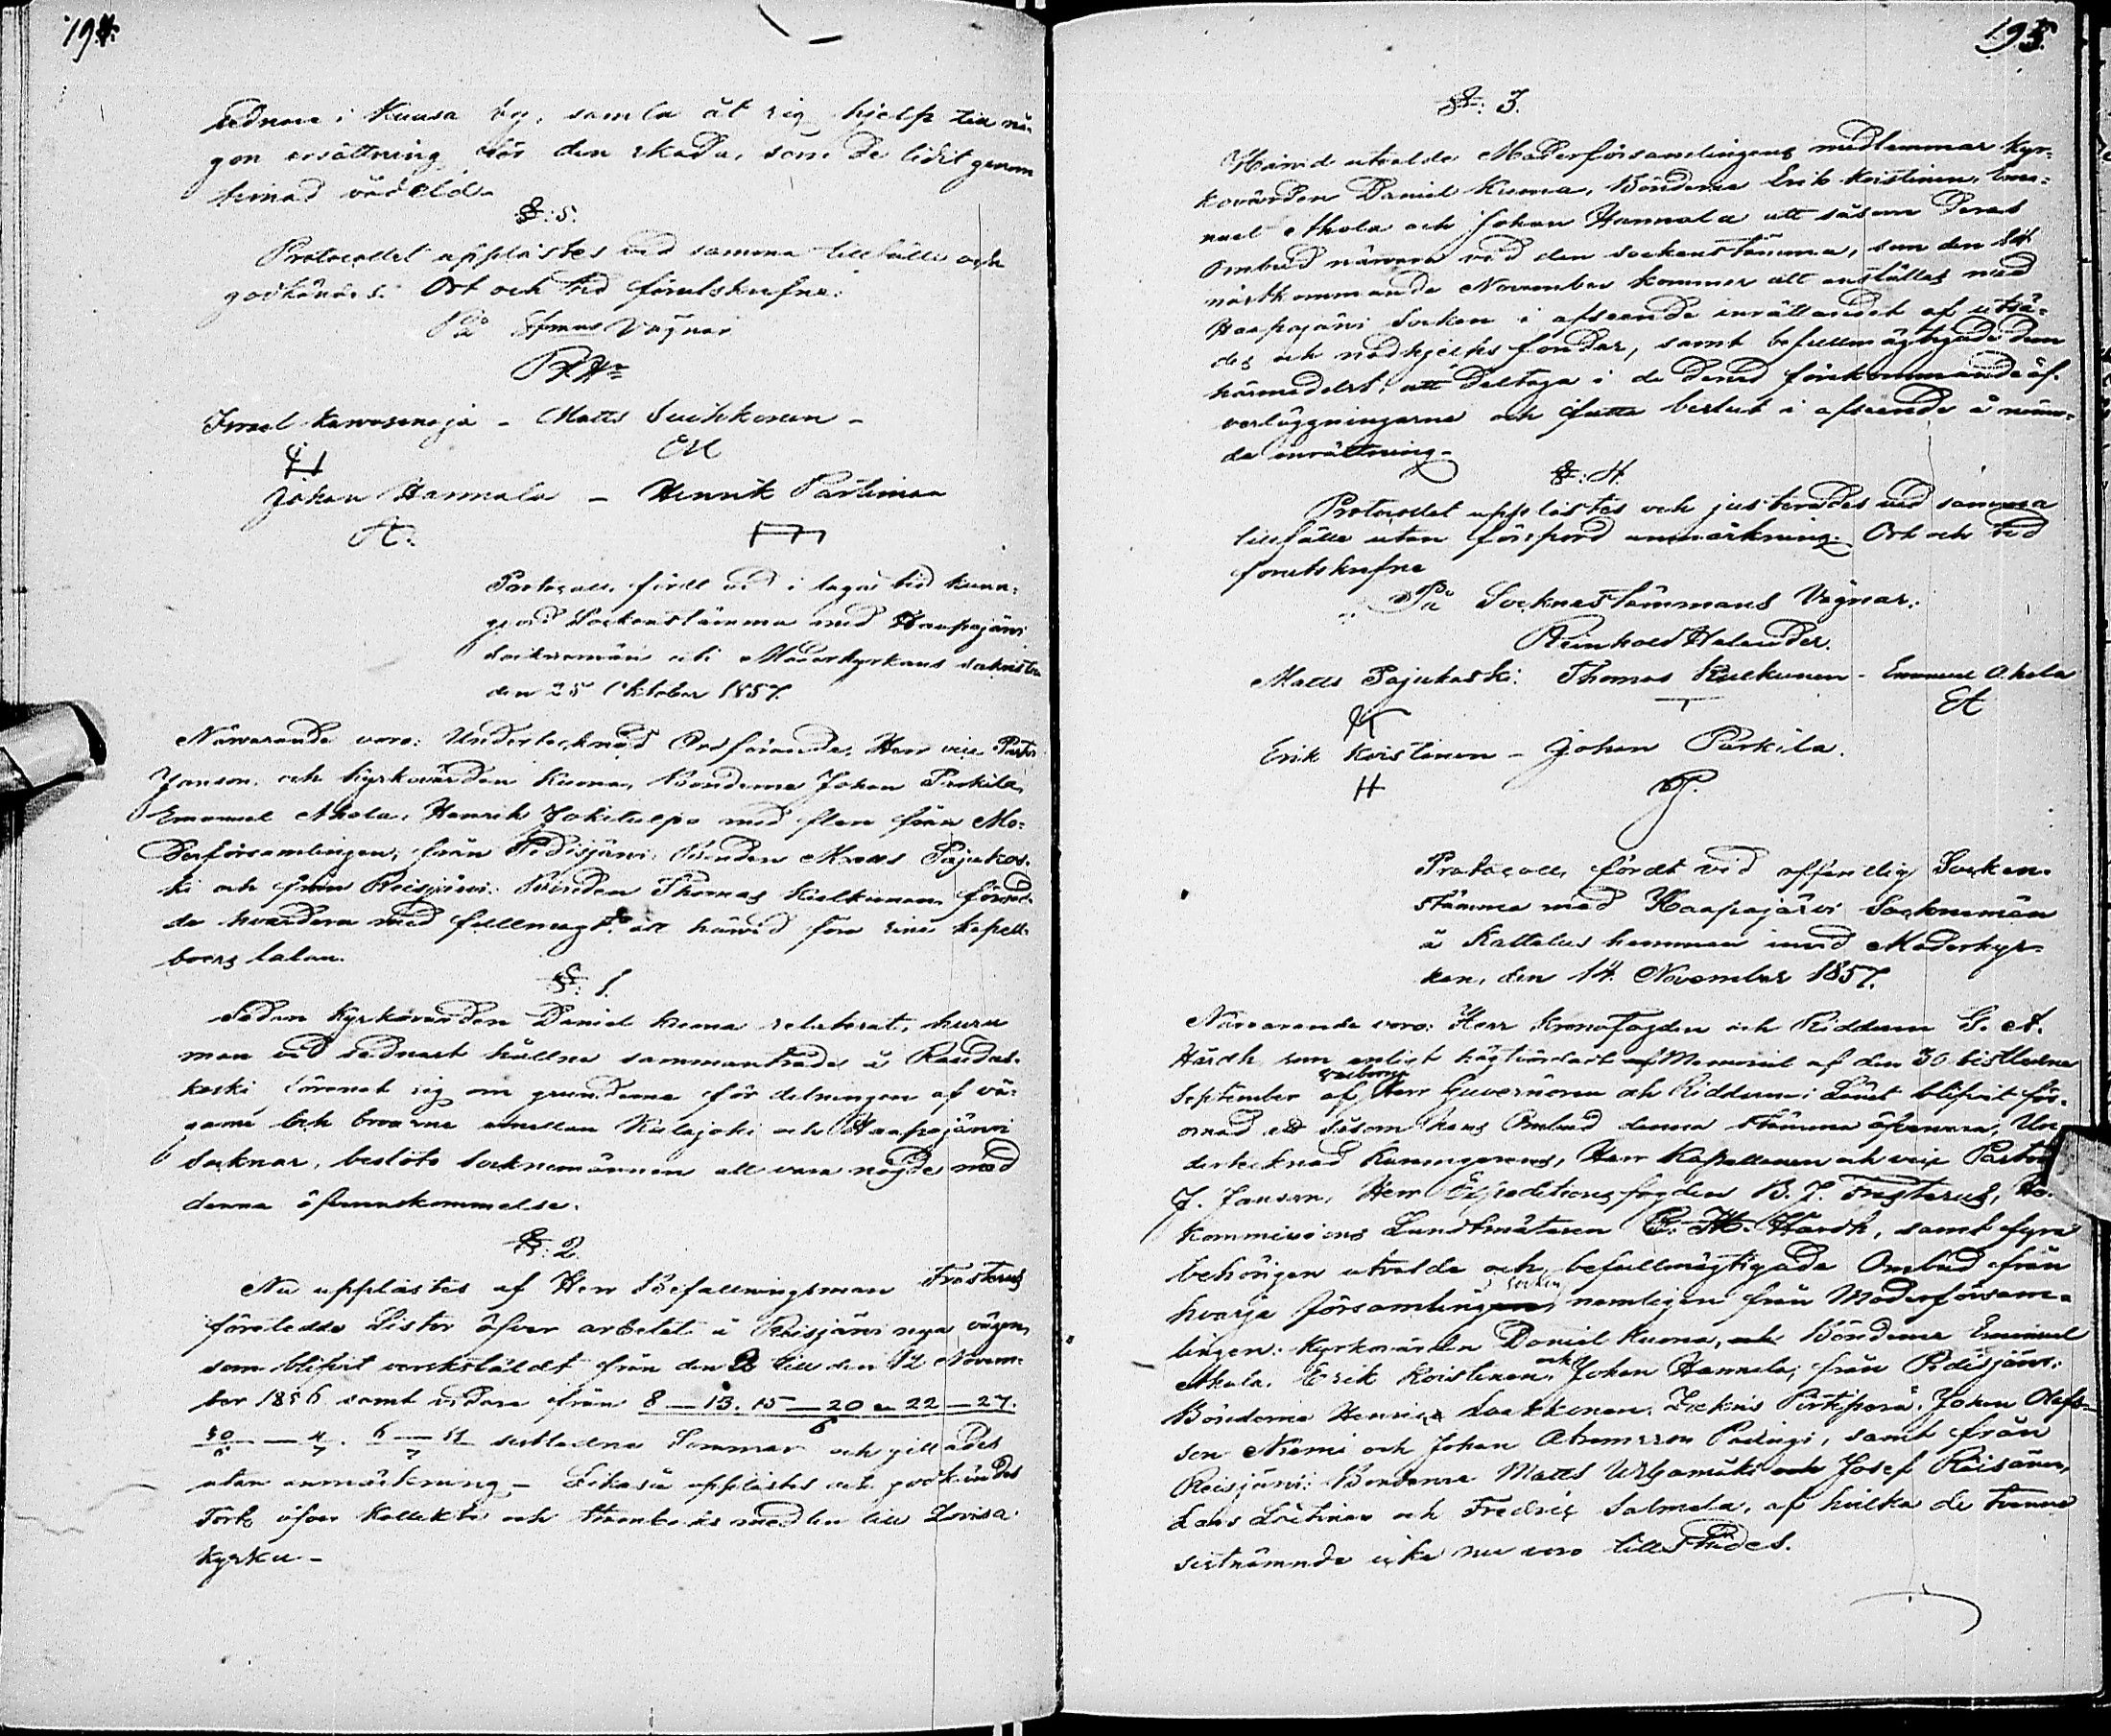 194.
lednare i Kuusa by, samla åt sig hjelp till nå-
gon ersättning för den skada, som de lidit genom
timad vådeld.
§: 5.
Protocollet upplästes vid samma tillfälle och
godkändes. Ort och tid förutskrefne.
På Stämmans Vägnar
RHr
Israel Karvosenoja - Matts Suihkonen -
Johan Hannala - Henrik Partinen
Protocoll, fördt vid i laga tid kunn-
gjord Sockenstämma med Haapajärvi
Socknemän uti Moderkyrkans sakristia
den 25 Oktober 1857.
Närvarande voro: Undertecknad Ordförande, Herr vice Pastor
Janson, och Kyrkovärden Kuona, Bönderne Johan Parkila,
Emanuel Ahola, Henrik Jokitulpo med flere från Mo-
derförsamlingen, från Pidisjärvi: Bonden Matts Pajukos-
ki och från Reisjärvi: Bonden Thomas Kielkunen försed-
de hvardera med fullmagt att härvid föra sine kapell-
boers talan.
§: 1.
Sedan Kyrkovärden Daniel Kuona relaterat, huru
man vid sednast hållne sammanträde å Raudas-
koski förenat sig om grunderne för delningen af vä-
garne och broarne emellan Kalajoki och Haapajärvi
Socknar, beslöto Socknemännen att vara nöjde med
denna öfverenskommelse.
§: 2.
Nu upplästes af Herr Befallningsman Frosterus
företedde Listor öfver arbetet å Reisjärvi nya vägen,
som blifvit verkstäldt från den 3 till den 12 Novem-
ber 1856 samt vidare från 8 — 13. 15 — 20 o 22 — 27.
6
30/6 — 4/7. 6 — 11/7 sistledne Sommar och gillades
utan anmärkning. - Likaså upplästes och godkändes
Förk öfver Kollekt och Stamboks medlen till Lovisa
Kyrka -
195
§: 3.
Härvid utvalde Moderförsamlingens medlemmar Kyr-
kovärden Daniel Kuona, Bönderne Erik Koistinen, Ema-
nuel Ahola och Johan Hannala att såsom deras
Ombud närvara vid den sockenstämma, som den 14
nästkommande November kommer att anställas med
Haapajärvi Socken i afseende inrättandet af utsä-
des och nödhjelps fonder, samt befullmägtigade dem
härmedelst, att deltaga i de dervid förekommande öf-
verläggningarne och fatta beslut i afseende å nämn-
da inrättning.
§: 4.
Protocollet upplästes och justerades vid samma
tillfälle utan förspord anmärkning. Ort och tid
förutskrefne
På Socknestämmans Vägnar:
Reinhold Helander.
Matts Pajukoski. Thomas Kielkunen - Emanuel Ahola
EA
Erik Koistinen - Johan Parkila.
H
Protocoll, fördt vid offentlig Socken-
stämma med Haapajärvi Socknemän
å Kattelus hemman invid Moderkyr-
kan, den 14. November 1857.
Närvarande voro: Herr Kronofogden och Riddaren G. A.
Hårdh som enligt högtvördadt Memorial af den 30 sistledne
September af Välborne Herr Guvernören och Riddaren i Länet blifvit för-
ordnad att såsom hans Ombud denna stämma öfvervara, Un-
dertecknad Kunnigerens, Herr Kapellanen och vice Pastorn
J. Janson, Herr Expeditionsfogden B. J. Frosterus, Ho-
Kommissions Landtmätaren C. H. Hårdh, samt fyra
behörigen utvalde och befullmägtigade Ombud från
hvarje Församling i socken, nemligen från Moderförsam-
lingen: Kyrkovärden Daniel Kuona, och Bönderne Emanuel
Ahola, Erik Koistinen, och Johan Hannala, från Pidisjärvi:
Bönderne Henric Laekkonen, Zackris Pirtiperä, Johan Olofs-
son Niemi och Johan Abramsson Padingi, samt från
Reisjärvi: Bönderne Matts Weljamäki och Josef Räisänen,
Lars Löitinen och Fredric Salmela, af hvilka de tvenne
sistnämnde icke nu voro tillstädes.